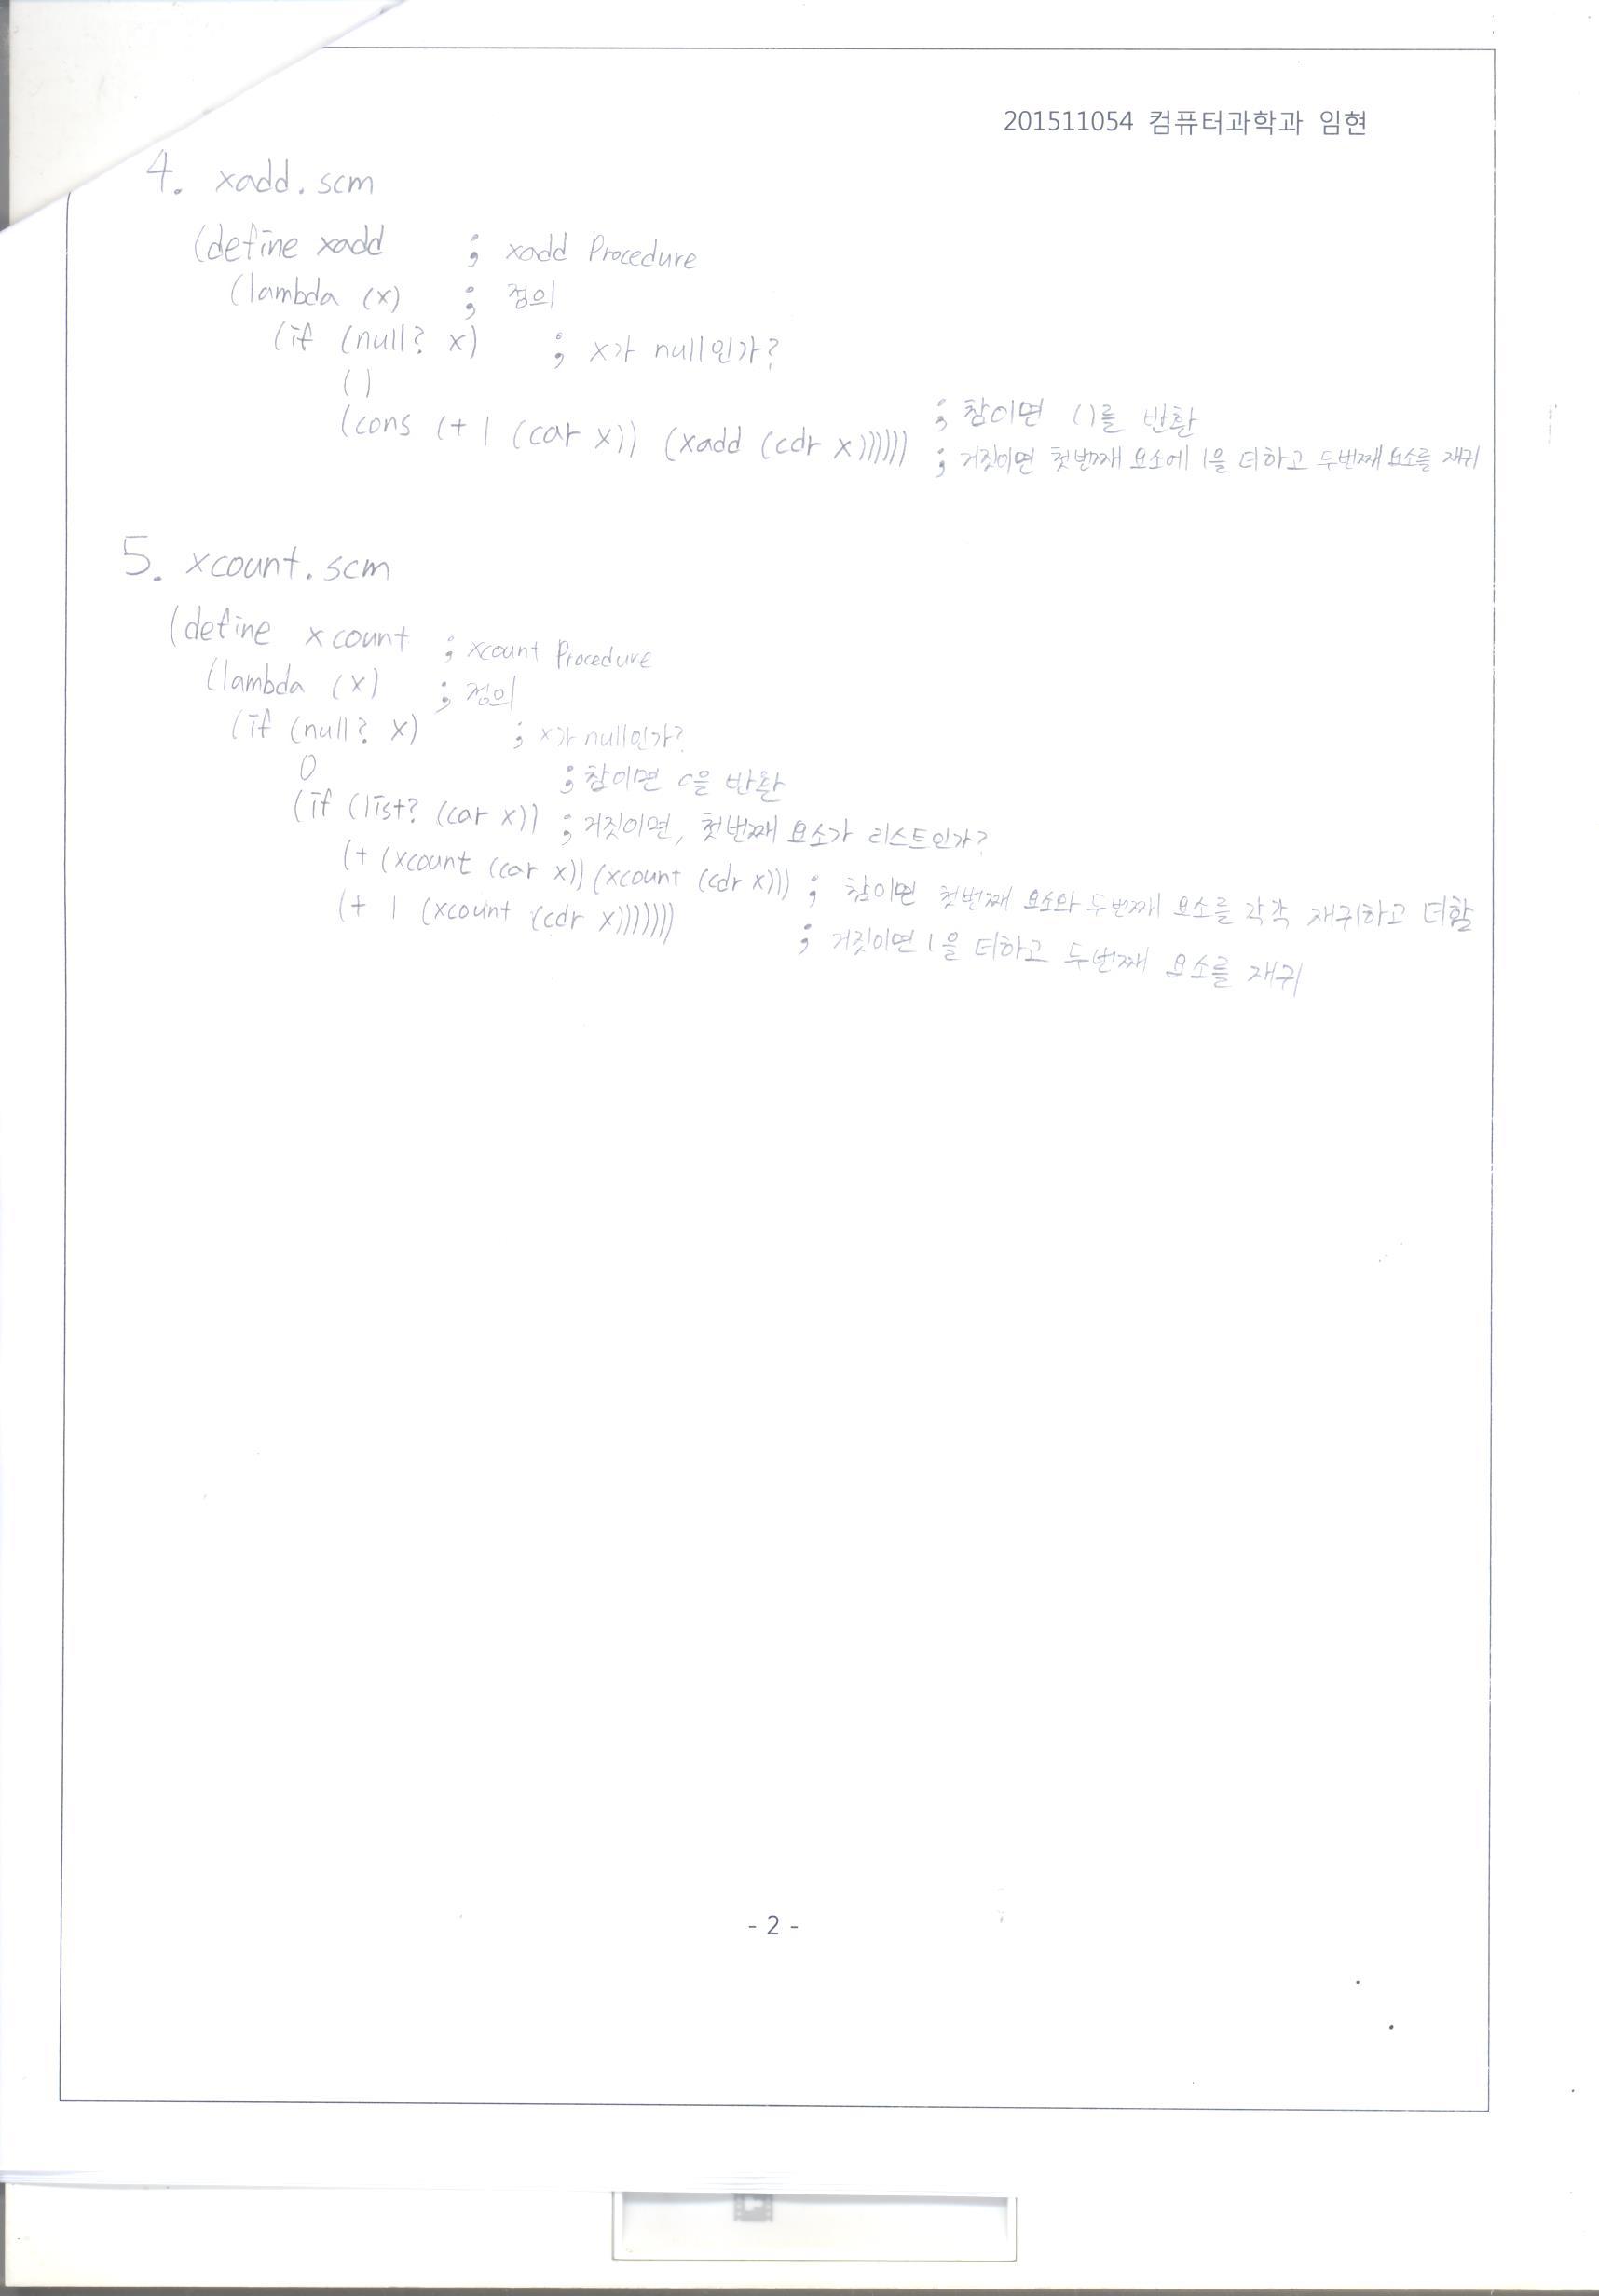 201511054 컴퓨터과학과 임현
4. xadd.scm
(define xadd ; xadd Procedure
(lambda (x) ; 정의
(if (null? x) ; x가 null인가?
() ; 참이면 ()를 반환
(cons (+ 1 (car x)) (xadd (cdr x)))))) ; 거짓이면 첫번째 요소에 1을 더하고 두번째 요소를 재귀
5. xcount.scm
(define xcount ; xcount Procedure
(lambda (x) ; 정의
(if (null? x) ; x가 null인가?
0 ; 참이면 0을 반환
(if (list? (car x)) ; 거짓이면, 첫번째 요소가 리스트인가?
(+ (xcount (car x)) (xcount (cdr x))) ; 참이면 첫번째 요소와 두번째 요소를 각각 재귀하고 더함
(+ 1 (xcount (cdr x))))))) ; 거짓이면 1을 더하고 두번째 요소를 재귀
- 2 -